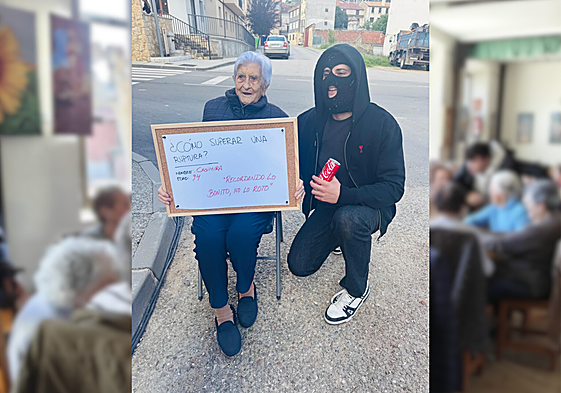 ¿CÓMO SUPERAR UNA
RUPTURA?
NOMBRE: CASIMIRA
EDAD: 94
"RECORDANDO LO
BONITO, NO LO ROTO"